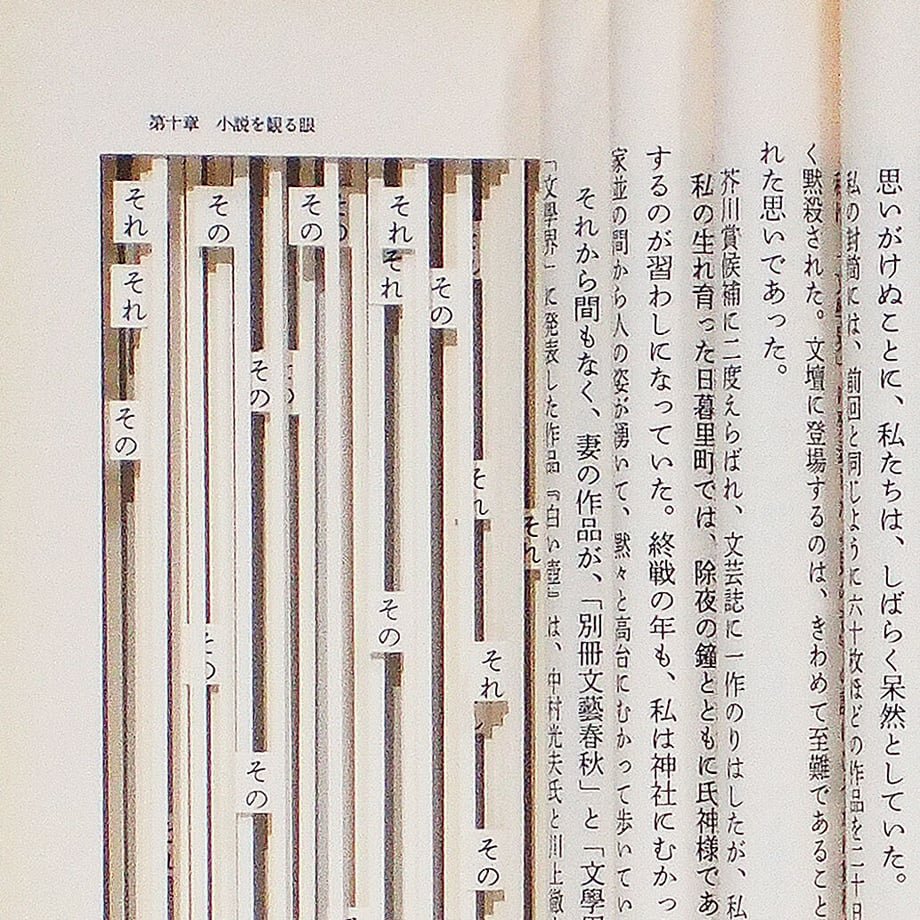 思いがけぬことに、私たちは、しばらく呆然としていた。
私の封筒には、前回と同じように六十枚ほどの作品を二十日
く黙殺された。文壇に登場するのは、きわめて至難であること
れた思いであった。
芥川賞候補に二度えらばれ、文芸誌に一作のりはしたが、私
私の生れ育った日暮里町では、除夜の鐘とともに氏神様であ
するのが習わしになっていた。終戦の年も、私は神社にむかっ
家並の間から人の姿が湧いて、黙々と高台にむかって歩いてい
それから間もなく、妻の作品が、「別冊文藝春秋」と「文學
「文學界」に発表した作品『白い壺』は、中村光夫氏と川上徹
第十章　小説を観る眼
それ
それ
それ
その
その
それ
それ
その
その
その
その
その
その
それ
それ
その